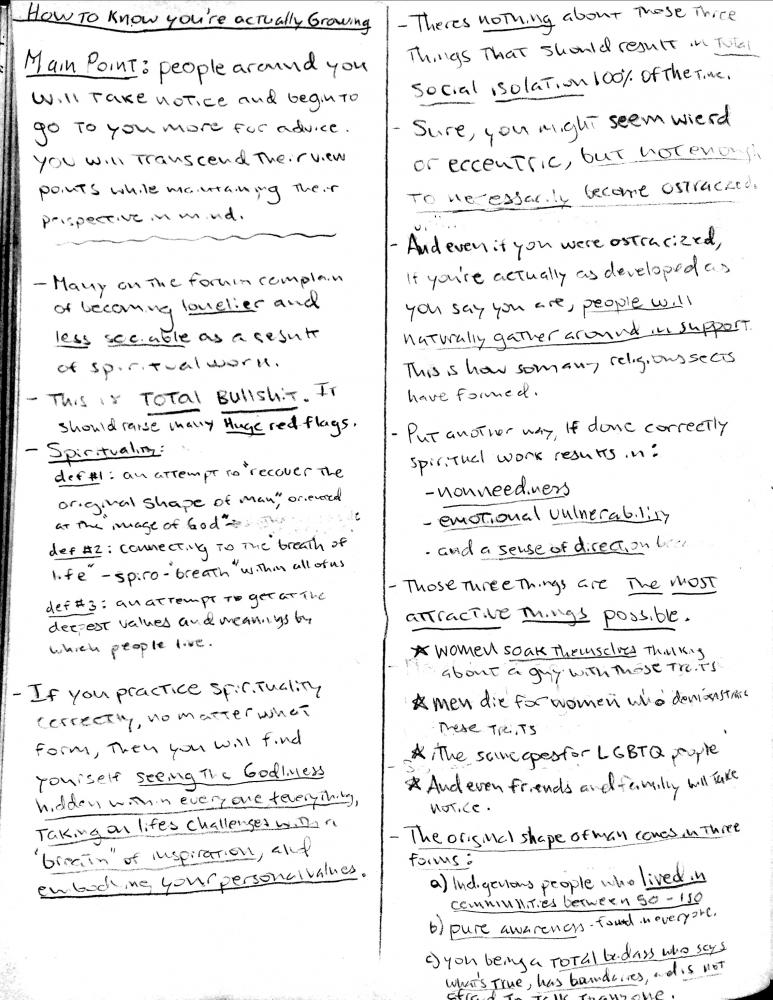 How to Know you're actually Growing
Main Point: people around you
will Take notice and begin to
go to you more for advice.
you will Transcend their view
points while maintaining their
perspective in mind.
- Many on the forum complain
of becoming lonelier and
less sociable as a result
of spiritual work.
- This is TOTAL Bullshit. It
should raise many Huge red flags.
- Spirituality:
def #1: an attempt to "recover the
original shape of man", oriented
at the "image of God"
def #2: connecting to the "breath of
life" - spiro - "breath" within all of us
def #3: an attempt to get at the
deepest values and meanings by
which people live.
- If you practice spirituality
correctly, no matter what
form, Then you will find
yourself seeing the Godliness
hidden within everyone & everything,
Taking on lifes challenges with a
"breath" of inspiration, and
embodying your personal values.
- Theres nothing about those three
Things That should result in Total
social isolation 100% of the time.
- Sure, you might seem wierd
or eccentric, but not enough
To necessarily become ostracized.
- And even if you were ostracized,
If you're actually as developed as
you say you are, people will
naturally gather around in support.
This is how so many religious sects
have formed.
- Put another way, If done correctly
spiritual work results in:
- nonneediness
- emotional vulnerability
- and a sense of direction
- Those Three Things are The most
attractive Things possible.
★ women soak themselves Thinking
about a guy with those traits
★ men die for women who demonstrate
these traits
★ The same goes for LGBTQ people
★ And even friends and family will Take
notice.
- The original shape of man comes in Three
forms:
a) Indigenous people who lived in
communities between 50 - 150
b) pure awareness - found in everyone.
c) you being a TOTAL badass who says
what's True, has boundaries, and is not
afraid To Talk To anyone.